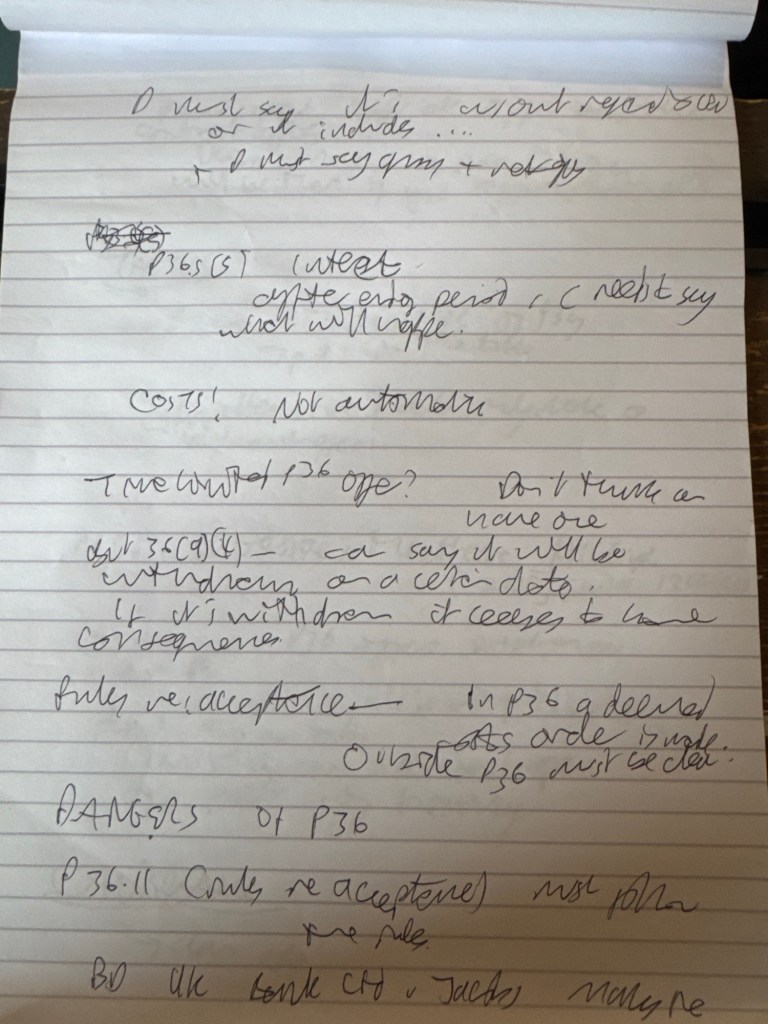 D must say it's w/out regard to CRU
or it includes ....
+ D must say gross + net
P36.5(5) interest
after end of period, C needn't say
what will happen.
COSTS! Not automatic
Time limited P36 offer? Don't think can
have one
but 36(9)(4) - can say it will be
withdrawn on a certain date.
If it's withdrawn it ceases to have
consequences
Rules re: acceptance - In P36 a deemed
costs order is made.
Outside P36 must be clear.
DANGERS of P36
P36.11 (rules re acceptance) must follow
the rules.
BD UK Bank Ltd v Jacobs